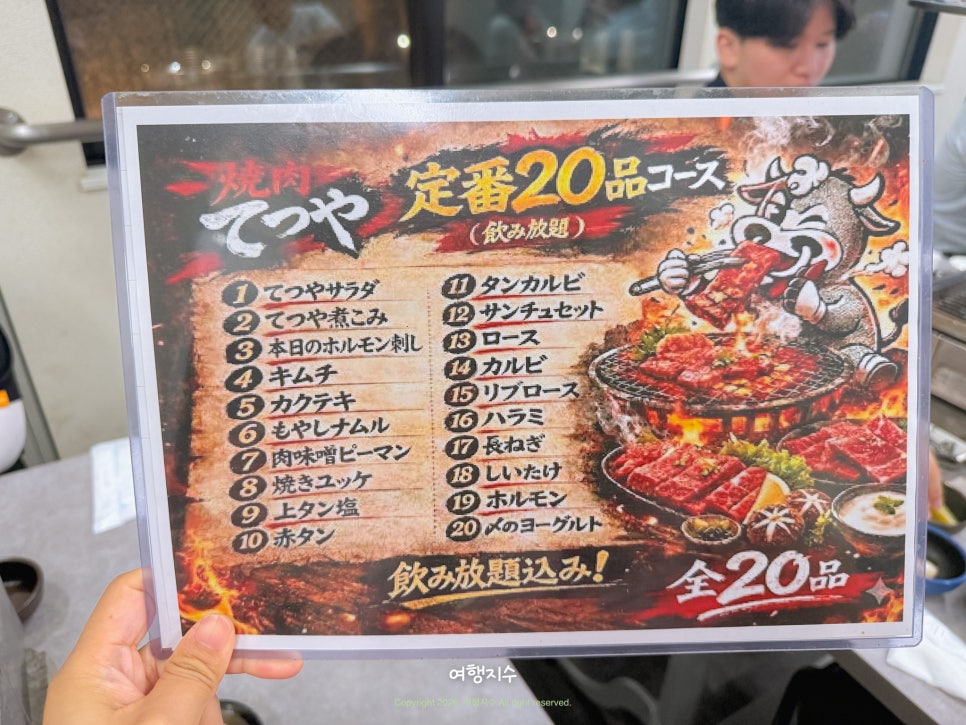 焼肉
てつや
定番20品コース
(飲み放題)
1 てつやサラダ
2 てつや煮こみ
3 本日のホルモン刺し
4 キムチ
5 カクテキ
6 もやしナムル
7 肉味噌ピーマン
8 焼きユッケ
9 上タン塩
10 赤タン
11 タンカルビ
12 サンチュセット
13 ロース
14 カルビ
15 リブロース
16 ハラミ
17 長ねぎ
18 しいたけ
19 ホルモン
20 〆のヨーグルト
飲み放題込み!
全20品
여행지수
Copyright All rights reserved.